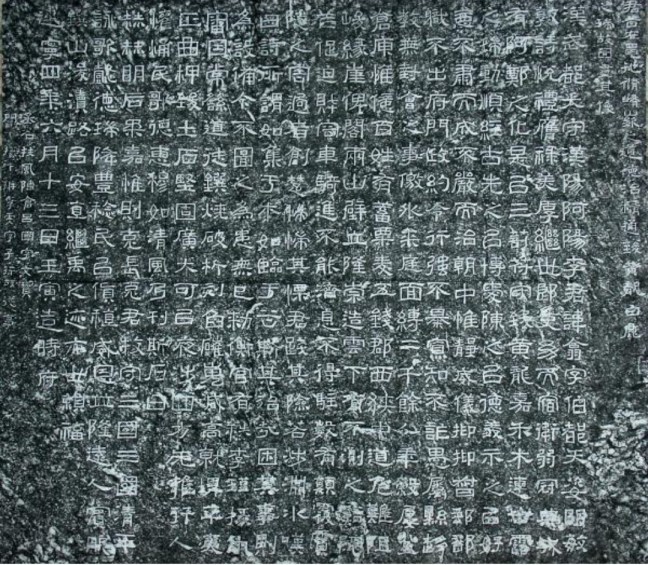 漢武都太守漢陽阿陽李君諱翕字伯都天姿明敏
敦詩悅禮膺祿美厚繼世郎吏幼而宿衛弱冠典城
有阿鄭之化是以三剖符守致黃龍嘉禾木連甘露
之瑞動順經古先之以博愛陳之以德義示之以好
惡不肅而成不嚴而治朝中惟靜威儀抑抑督郵部
職不出府門政約令行強不暴寡知不詐愚屬縣趍
教無對會之事徼外來庭面縛二千餘人年穀屢登
倉庾惟億百姓有蓄粟麥五錢郡西狹中道危難阻
峻緣崖俾閣兩山壁立隆崇造雲下有不測之谿阨
芒促迫財容車騎進不能濟息不得駐數有顛覆霣
隧之害過者創楚惴惴其慄君踐其險若涉淵冰嘆
曰詩所謂如集于木如臨于谷斯其殆哉困其事則
為設備今不圖之為患無已敕衡官有秩李瑾掾仇
審因常繇道徒鐉燒破析刻臽磪嵬減高就埤平夷
正曲柙致土石堅固廣大可以夜涉四方无雍行人
懽悀民歌德惠穆如清風乃刊斯石曰
赫赫明后柔嘉惟則克長克君牧守三國三國清平
詠歌懿德瑞降豐稔民以貨稙威恩並隆遠人賓服
鐉山浚瀆路以安直繼禹之迹亦世賴福
建寧四年六月十三日壬寅造時府